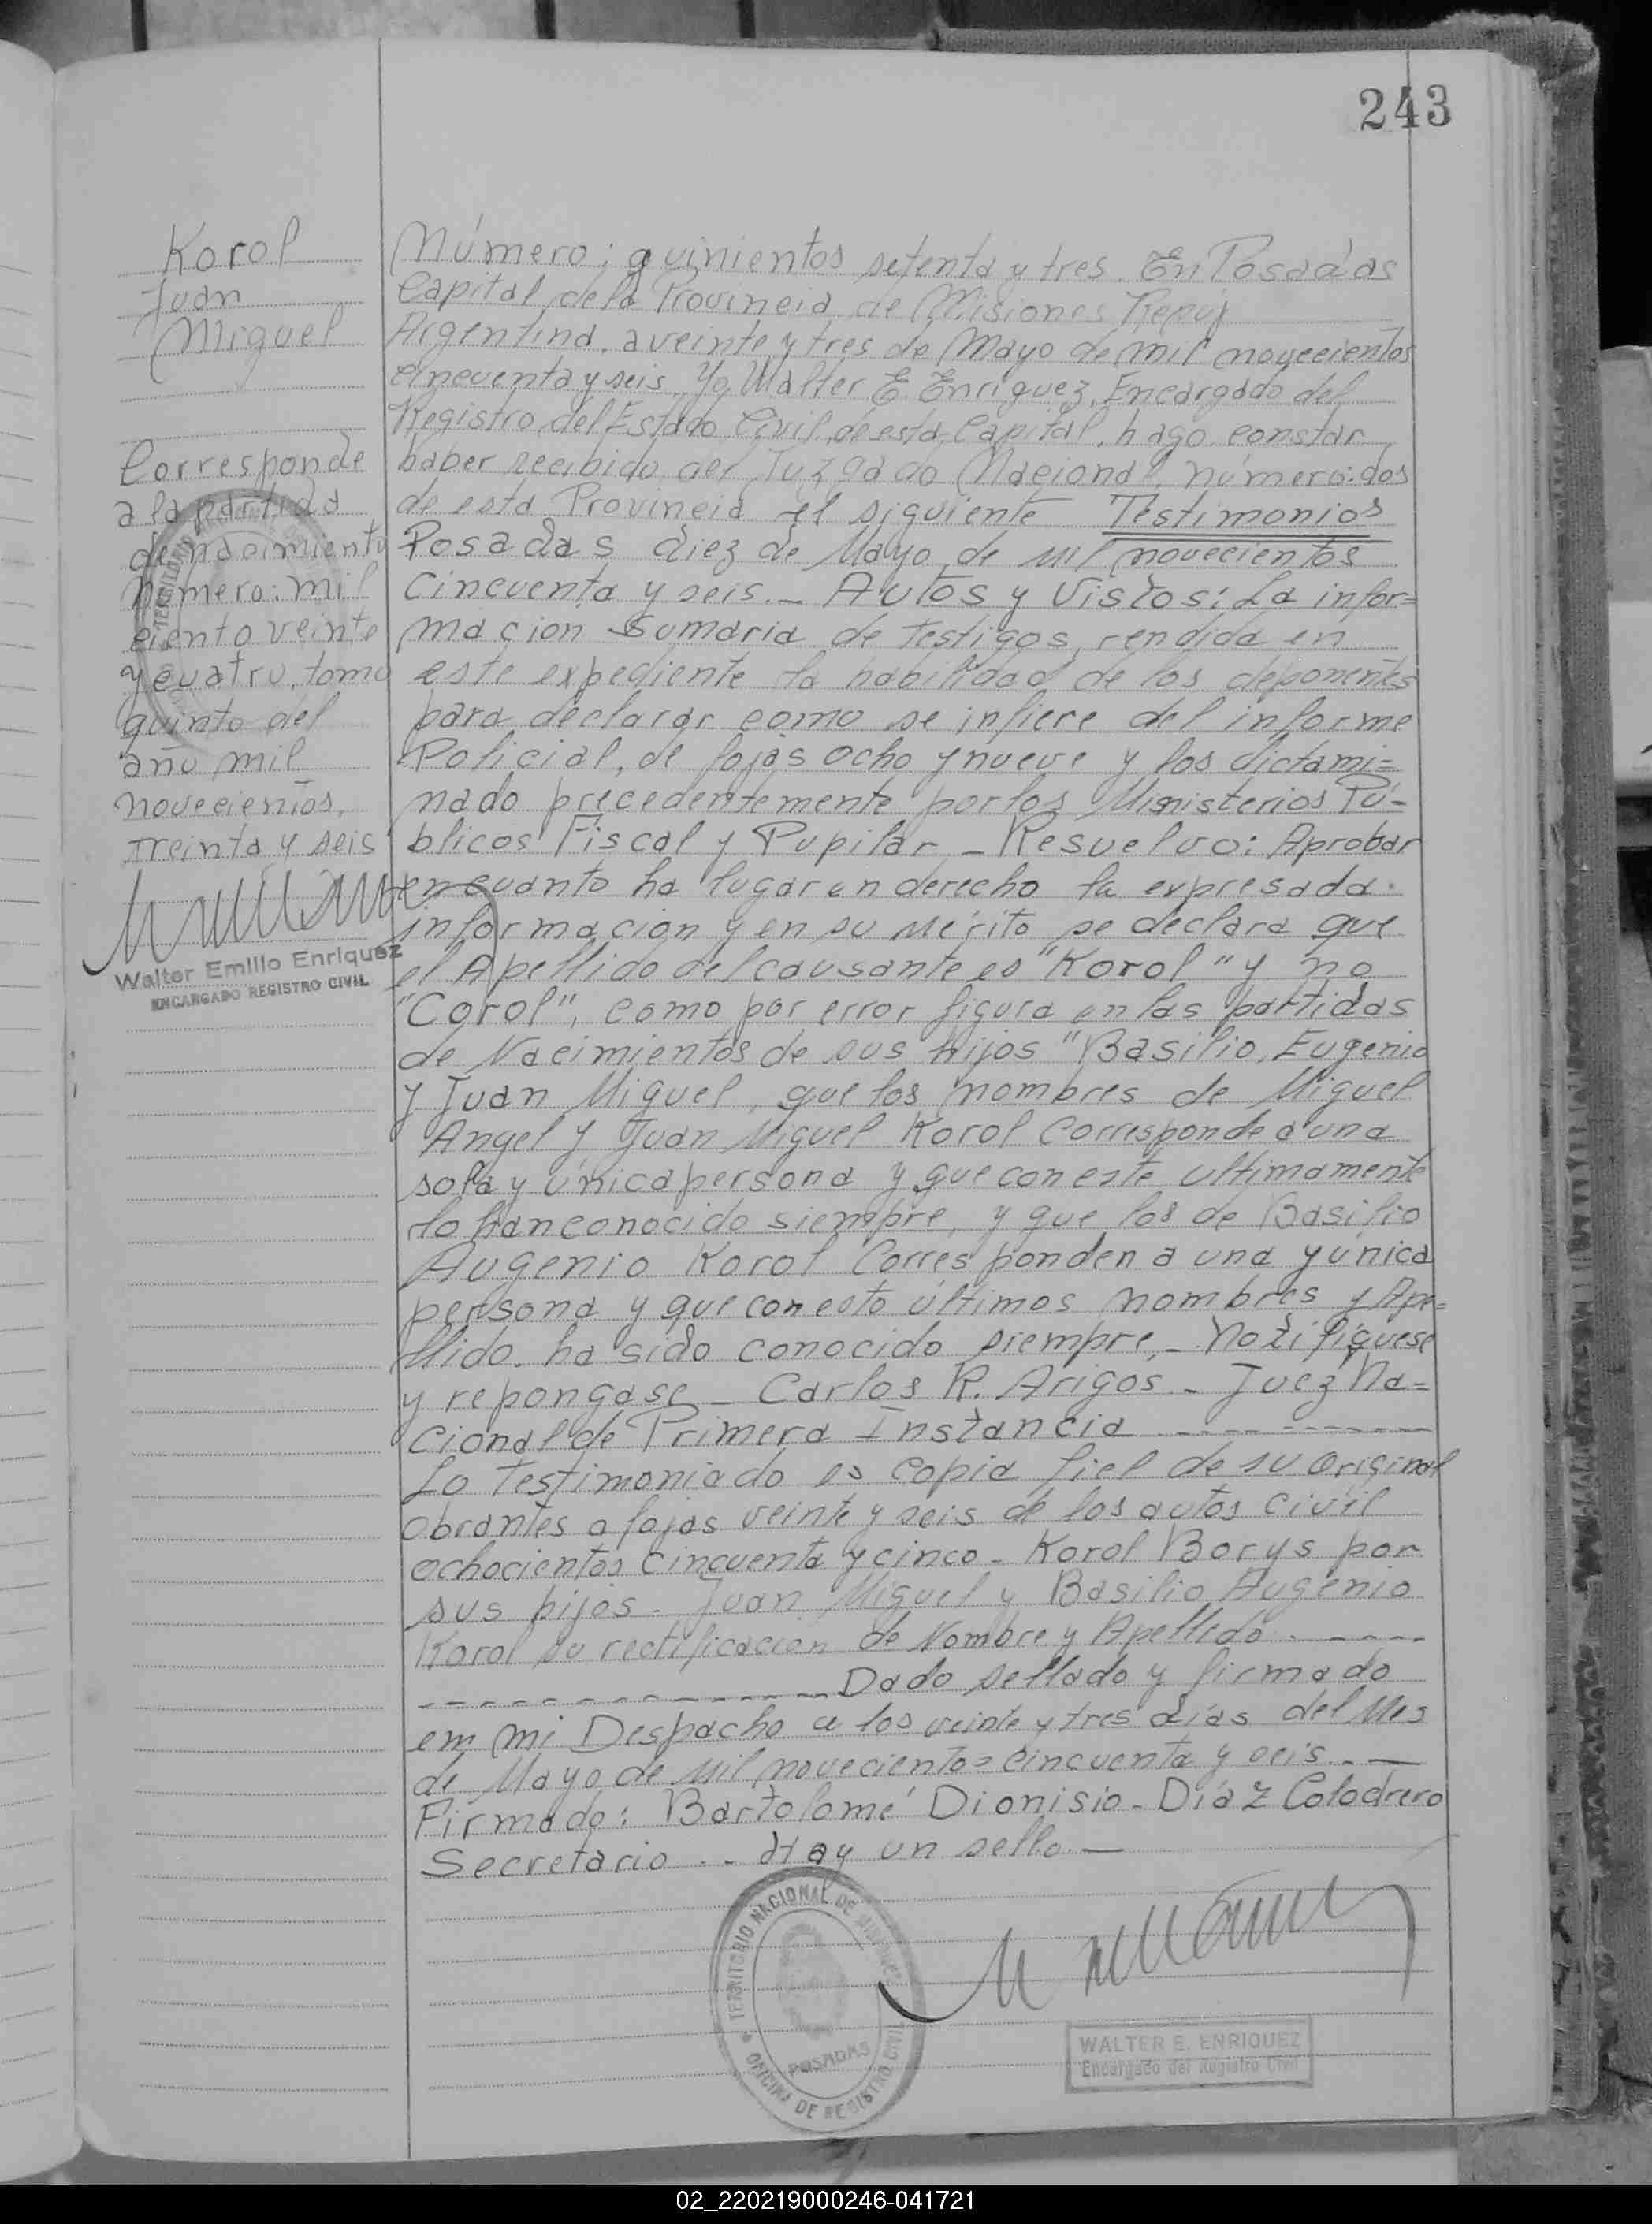 243
Korol
Juan
Miguel
Corresponde
a la partida
de nacimiento
número: mil
ciento veinte
y cuatro, tomo
quinto del
año mil
novecientos,
treinta y seis
Walter Emilio Enriquez
ENCARGADO REGISTRO CIVIL
Número: quinientos setenta y tres. En Posadas
Capital de la Provincia de Misiones Repúb
Argentina, a veinte y tres de Mayo de mil novecientos
cincuenta y seis. Yo, Walter E. Enriquez, Encargado del
Registro del Estado Civil de esta Capital, hago constar
haber recibido del Juzgado Nacional número: dos
de esta Provincia el siguiente Testimonios
Posadas diez de Mayo de mil novecientos
cincuenta y seis._ Autos y Vistos: La infor=
macion Sumaria de Testigos, rendida en
este expediente la habilidad de los deponentes
para declarar como se infiere del informe
Policial, de fojas ocho y nueve y los dictami=
nado precedentemente por los Ministerios Pú-
blicos Fiscal y Pupilar,_ Resuelvo: Aprobar
en cuanto ha lugar en derecho la expresada
informacion y en su mérito se declara que
el Apellido del causante es "Korol" y no
"Corol", como por error figura en las partidas
de Nacimientos de sus hijos "Basilio, Eugenio
y Juan Miguel, que los nombres de Miguel
Angel y Juan Miguel Korol Corresponde a una
sola y única persona y que con este ultimamente
lo han conocido siempre, y que los de Basilio
Augenio Korol Corresponden a una y única
persona y que con esto últimos nombres y Ape=
llido. ha sido conocido siempre,_ Notifíquese
y repongase_ Carlos R. Arigos_ Juez Na=
cional de Primera Instancia
Lo Testimoniado es copia fiel de su original
obrantes a fojas veinte y seis de los autos civil
ochocientos cincuenta y cinco_ Korol Borys por
sus hijos_ Juan Miguel y Basilio Augenio
Korol su rectificacion de Nombre y Apellido
Dado sellado y firmado
em mi Despacho a los veinte y tres días del Mes
de Mayo de mil novecientos cincuenta y seis._
Firmado: Bartolomé Dionisio_ Díaz Colodrero
Secretario._ Hay un sello._
TERRITORIO NACIONAL DE MISIONES
POSADAS
OFICINA DE REGISTRO CIVIL
WALTER E. ENRIQUEZ
Encargado del Registro Civil
02_220219000246-041721